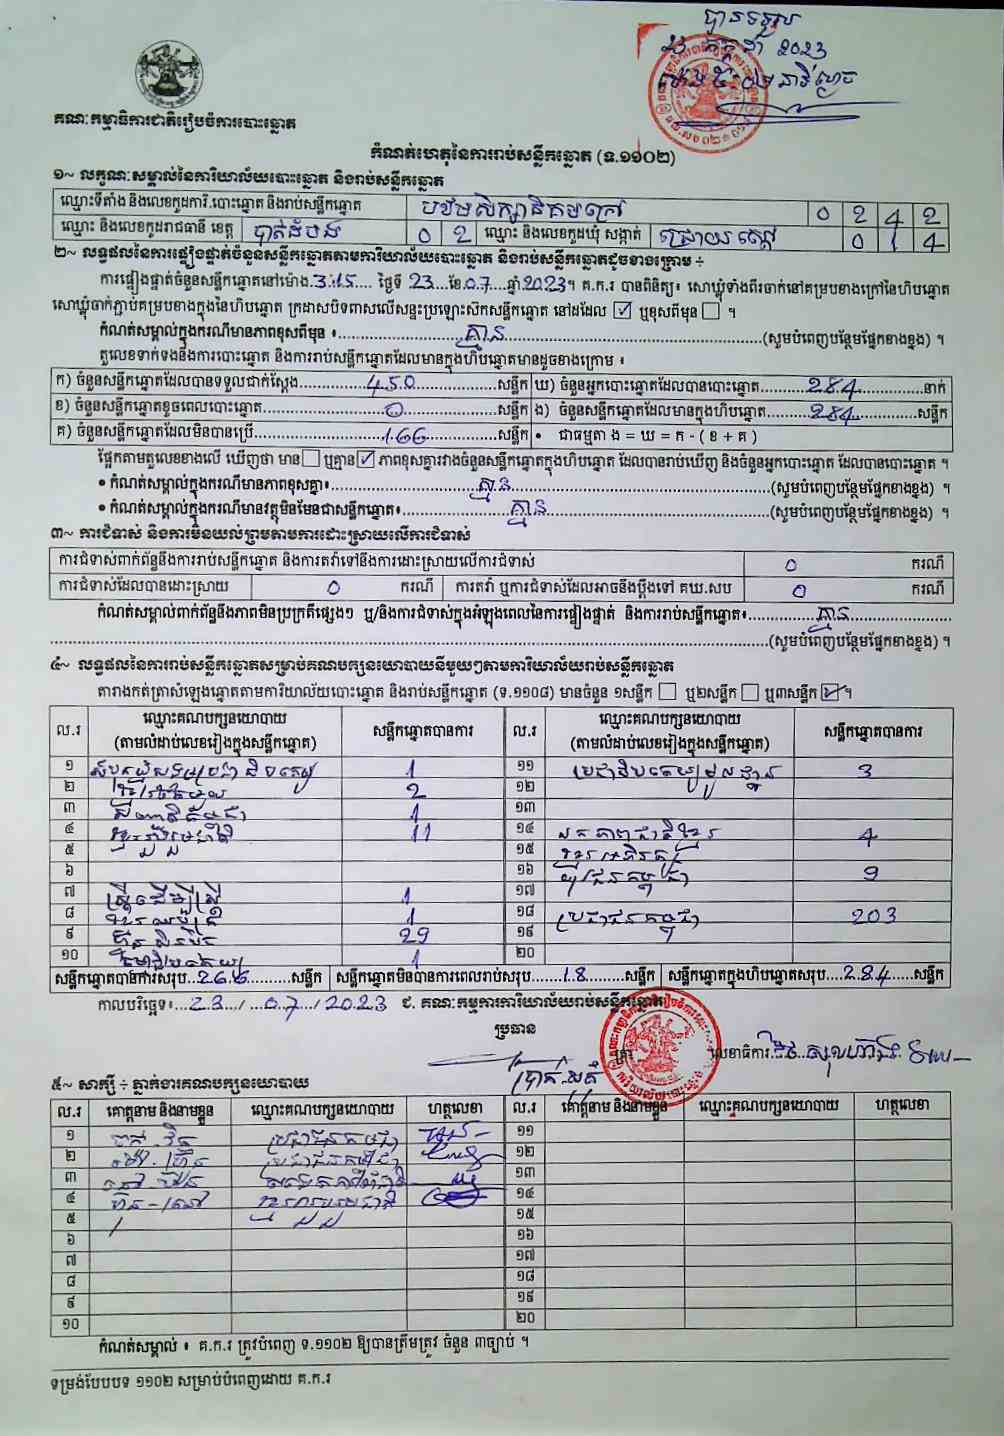 បានទទួល
2023
គណៈកម្មាធិការជាតិរៀបចំការបោះឆ្នោត
កំណត់ហេតុនៃការរាប់សន្លឹកឆ្នោត (ទ.១១០២)
១~ លក្ខណៈសម្គាល់នៃការិយាល័យបោះឆ្នោត និងរាប់សន្លឹកឆ្នោត
ឈ្មោះទីតាំង និងលេខកូដការិ.បោះឆ្នោត និងរាប់សន្លឹកឆ្នោត 0 2 4 2
ឈ្មោះ និងលេខកូដរាជធានី ខេត្ត បាត់ដំបង 0 2 ឈ្មោះ និងលេខកូដឃុំ សង្កាត់ 0 1 4
២~ លទ្ធផលនៃការផ្ទៀងផ្ទាត់ចំនួនសន្លឹកឆ្នោតតាមការិយាល័យបោះឆ្នោត និងរាប់សន្លឹកឆ្នោតដូចខាងក្រោម ÷
ការផ្ទៀងផ្ទាត់ចំនួនសន្លឹកឆ្នោតនៅម៉ោង 3:15 ថ្ងៃទី 23 ខែ 07 ឆ្នាំ 2023។ គ.ក.រ បានពិនិត្យ៖ សោឃ្លុំទាំងពីរចាក់នៅគម្របខាងក្រៅនៃហិបឆ្នោត
សោឃ្លុំចាក់ភ្ជាប់គម្របខាងក្នុងនៃហិបឆ្នោត ក្រដាសបិទពាសលើសន្ទះប្រឡោះស៊កសន្លឹកឆ្នោត នៅដដែល ☑ ឬខុសពីមុន ☐ ។
កំណត់សម្គាល់ក្នុងករណីមានភាពខុសពីមុន ៖ គ្មាន (សូមបំពេញបន្ថែមផ្នែកខាងខ្នង) ។
តួលេខទាក់ទងនឹងការបោះឆ្នោត និងការរាប់សន្លឹកឆ្នោតដែលមានក្នុងហិបឆ្នោតមានដូចខាងក្រោម ៖
ក) ចំនួនសន្លឹកឆ្នោតដែលបានទទួលជាក់ស្តែង 450 សន្លឹក ឃ) ចំនួនអ្នកបោះឆ្នោតដែលបានបោះឆ្នោត 284 នាក់
ខ) ចំនួនសន្លឹកឆ្នោតខូចពេលបោះឆ្នោត 0 សន្លឹក ង) ចំនួនសន្លឹកឆ្នោតដែលមានក្នុងហិបឆ្នោត 284 សន្លឹក
គ) ចំនួនសន្លឹកឆ្នោតដែលមិនបានប្រើ 166 សន្លឹក • ជាធម្មតា ង = ឃ = ក - ( ខ + គ )
ផ្អែកតាមតួលេខខាងលើ ឃើញថា មាន ☐ ឬគ្មាន ☑ ភាពខុសគ្នារវាងចំនួនសន្លឹកឆ្នោតក្នុងហិបឆ្នោត ដែលបានរាប់ឃើញ និងចំនួនអ្នកបោះឆ្នោត ដែលបានបោះឆ្នោត ។
• កំណត់សម្គាល់ក្នុងករណីមានភាពខុសគ្នា៖ គ្មាន (សូមបំពេញបន្ថែមផ្នែកខាងខ្នង) ។
• កំណត់សម្គាល់ក្នុងករណីមានវត្ថុមិនមែនជាសន្លឹកឆ្នោត៖ គ្មាន (សូមបំពេញបន្ថែមផ្នែកខាងខ្នង) ។
៣~ ការជំទាស់ និងការមិនយល់ព្រមតាមការដោះស្រាយលើការជំទាស់
ការជំទាស់ពាក់ព័ន្ធនឹងការរាប់សន្លឹកឆ្នោត និងការតវ៉ាទៅនឹងការដោះស្រាយលើការជំទាស់ 0 ករណី
ការជំទាស់ដែលបានដោះស្រាយ 0 ករណី ការតវ៉ា ឬការជំទាស់ដែលអាចនឹងប្តឹងទៅ គឃ.សប 0 ករណី
កំណត់សម្គាល់ពាក់ព័ន្ធនឹងភាពមិនប្រក្រតីផ្សេងៗ ឬ/និងការជំទាស់ក្នុងអំឡុងពេលនៃការផ្ទៀងផ្ទាត់ និងការរាប់សន្លឹកឆ្នោត៖ គ្មាន
(សូមបំពេញបន្ថែមផ្នែកខាងខ្នង) ។
៤~ លទ្ធផលនៃការរាប់សន្លឹកឆ្នោតសម្រាប់គណបក្សនយោបាយនីមួយៗតាមការិយាល័យរាប់សន្លឹកឆ្នោត
តារាងកត់ត្រាសំឡេងឆ្នោតតាមការិយាល័យបោះឆ្នោត និងរាប់សន្លឹកឆ្នោត (ទ.១១០៨) មានចំនួន ១សន្លឹក ☐ ឬ២សន្លឹក ☐ ឬ៣សន្លឹក ☑ ។
ល.រ ឈ្មោះគណបក្សនយោបាយ (តាមលំដាប់លេខរៀងក្នុងសន្លឹកឆ្នោត) សន្លឹកឆ្នោតបានការ ល.រ ឈ្មោះគណបក្សនយោបាយ (តាមលំដាប់លេខរៀងក្នុងសន្លឹកឆ្នោត) សន្លឹកឆ្នោតបានការ
១ 1 ១១ ប្រជាធិបតេយ្យមូលដ្ឋាន 3
២ 2 ១២
៣ 1 ១៣
៤ 11 ១៤ 4
៥ ១៥
៦ ១៦ 9
៧ ស្ត្រីដើម្បីស្ត្រី 1 ១៧
៨ 1 ១៨ ប្រជាជនកម្ពុជា 203
៩ 29 ១៩
១០ 1 ២០
សន្លឹកឆ្នោតបានការសរុប 266 សន្លឹក សន្លឹកឆ្នោតមិនបានការពេលរាប់សរុប 18 សន្លឹក សន្លឹកឆ្នោតក្នុងហិបឆ្នោតសរុប 284 សន្លឹក
កាលបរិច្ឆេទ៖ 23 / 07 / 2023 ជ. គណៈកម្មការការិយាល័យរាប់សន្លឹកឆ្នោត
ប្រធាន
លេខាធិការ
៥~ សាក្សី ÷ ភ្នាក់ងារគណបក្សនយោបាយ
ល.រ គោត្តនាម និងនាមខ្លួន ឈ្មោះគណបក្សនយោបាយ ហត្ថលេខា ល.រ គោត្តនាម និងនាមខ្លួន ឈ្មោះគណបក្សនយោបាយ ហត្ថលេខា
១ ប្រជាជនកម្ពុជា ១១
២ ប្រជាជនកម្ពុជា ១២
៣ ១៣
៤ ១៤
៥ ១៥
៦ ១៦
៧ ១៧
៨ ១៨
៩ ១៩
១០ ២០
កំណត់សម្គាល់ ៖ គ.ក.រ ត្រូវបំពេញ ទ.១១០២ ឱ្យបានត្រឹមត្រូវ ចំនួន ៣ច្បាប់ ។
ទម្រង់បែបបទ ១១០២ សម្រាប់បំពេញដោយ គ.ក.រ